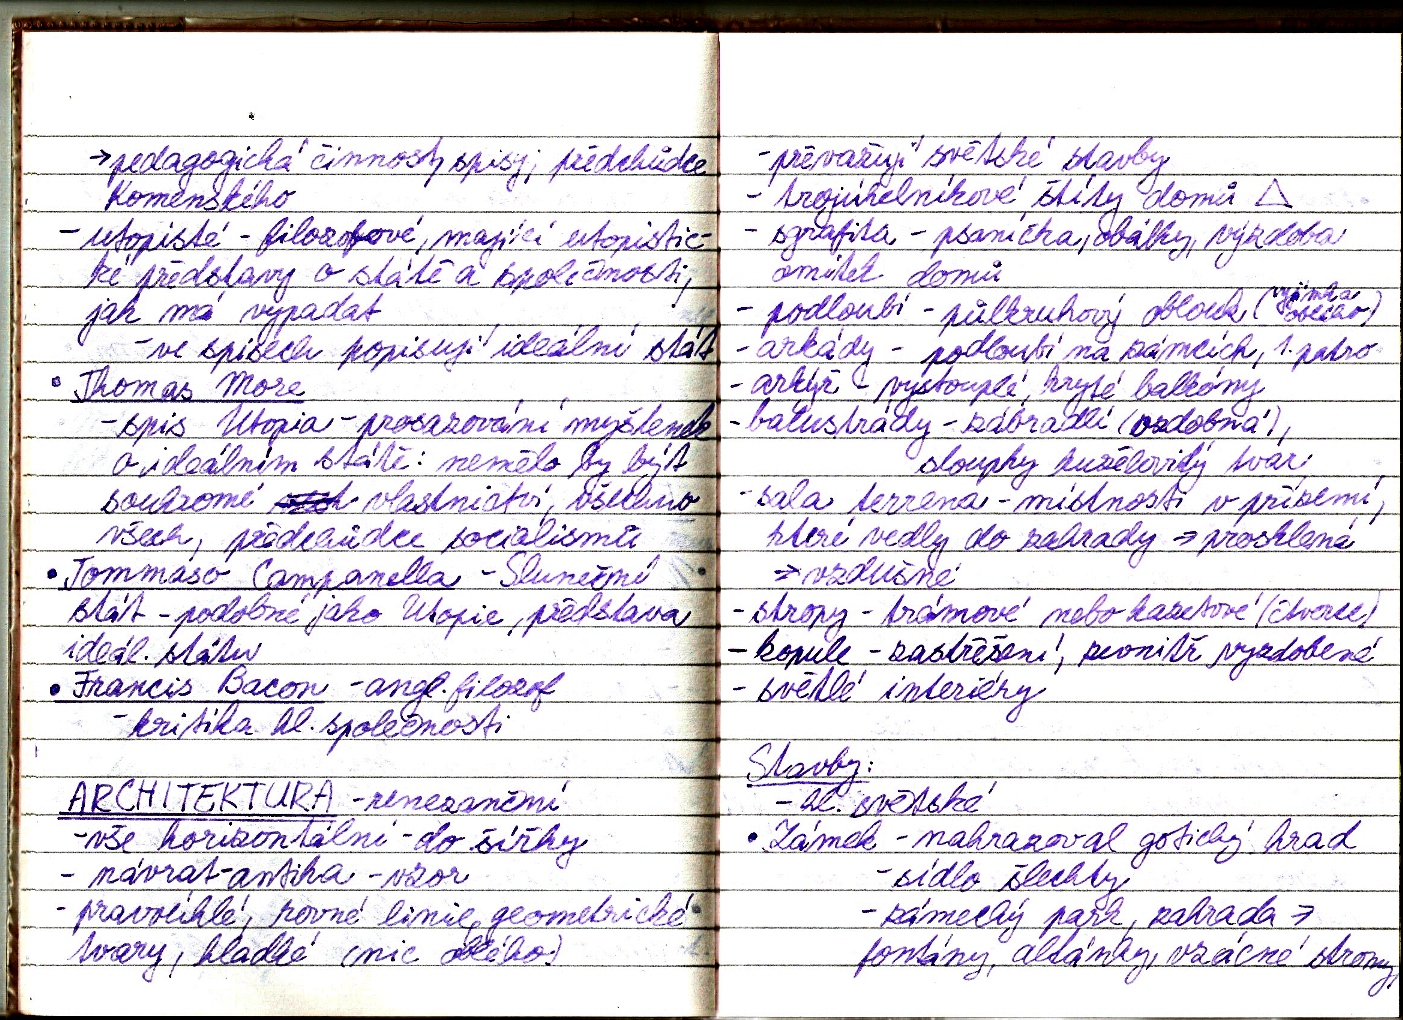 → pedagogická činnost, spisy, předchůdce
Komenského
- utopisté - filozofové, mající utopistic-
ké představy o státě a společnosti,
jak má vypadat
- ve spisech popisují ideální stát
• Thomas More
- spis Utopia - prosazování myšlenek
o ideálním státě: nemělo by být
soukromé vlastnictví, všechno
všech, předchůdce socialismu
• Tommaso Campanella - Sluneční
stát - podobné jako Utopie, představa
ideál. státu
• Francis Bacon - angl. filozof
- kritika hl. společnosti
ARCHITEKTURA - renezanční
- vše horizontální - do šířky
- návrat - antika - vzor
- pravoúhlé, rovné linie, geometrické
tvary, hladké (nic oblého)
- převažují světské stavby
- trojúhelníkové štíty domů △
- sgrafita - psaníčka, obálky, výzdoba
omítek domů
- podloubí - půlkruhový oblouk (výjimka oblého)
- arkády - podloubí na zámcích, 1. patro
- arkýř - vystouplé, kryté balkóny
- balustrády - zábradlí (ozdobná),
sloupky kuželovitý tvar
- sala terrena - místnosti v přízemí,
které vedly do zahrady → prosklená
→ vzdušné
- stropy - trámové nebo kazetové (čtverce)
- kopule - zastřešení, zevnitř vyzdobené
- světlé interiéry
Stavby:
- hl. světské
• Zámek - nahrazoval gotický hrad
- sídlo šlechty
- zámecký park, zahrada →
fontány, altánky, vzácné stromy,